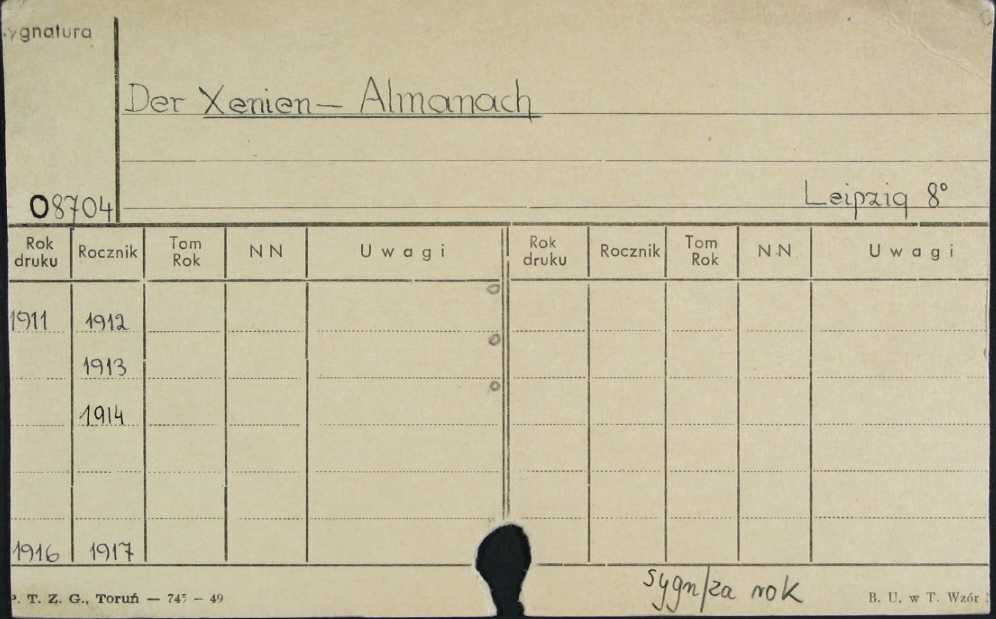 ygnatura
Der Xenien — Almanach
08704
Leipzig 8°
Rok druku Rocznik Tom Rok NN Uwagi Rok druku Rocznik Tom Rok NN Uwagi
1911 1912
1913
1914
1916 1917
sygn/za rok
P. T. Z. G., Toruń — 745 — 49
B. U. w T. Wzór